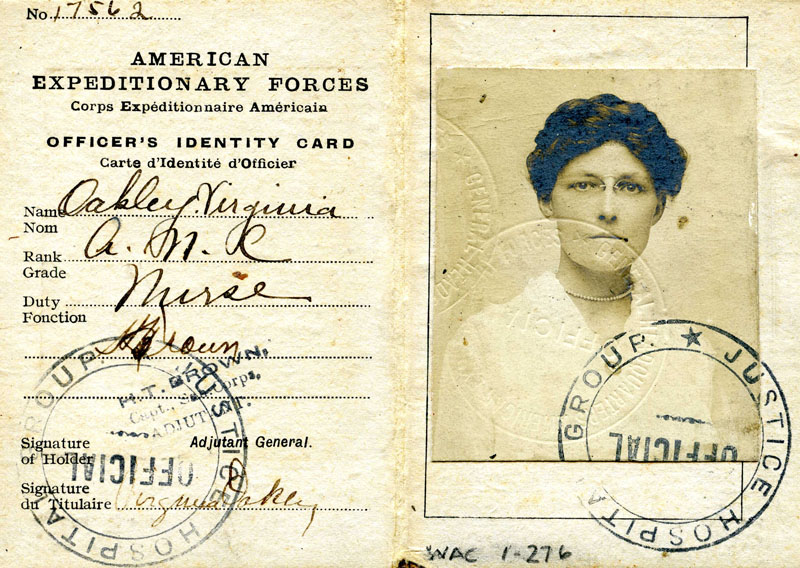 No 17562
AMERICAN
EXPEDITIONARY FORCES
Corps Expéditionnaire Américain
OFFICER'S IDENTITY CARD
Carte d'Identité d'Officier
Name Oakley Virginia
Nom
Rank A. N. C
Grade
Duty Nurse
Fonction
H T Brown
H.T. BROWN,
Capt., San. Corps,
ADJUTANT.
Signature
of Holder
Adjutant General.
Signature
du Titulaire Virginia Oakley
JUSTICE HOSPITAL GROUP
OFFICIAL
★ JUSTICE HOSPITAL GROUP
OFFICIAL
WAC 1-276